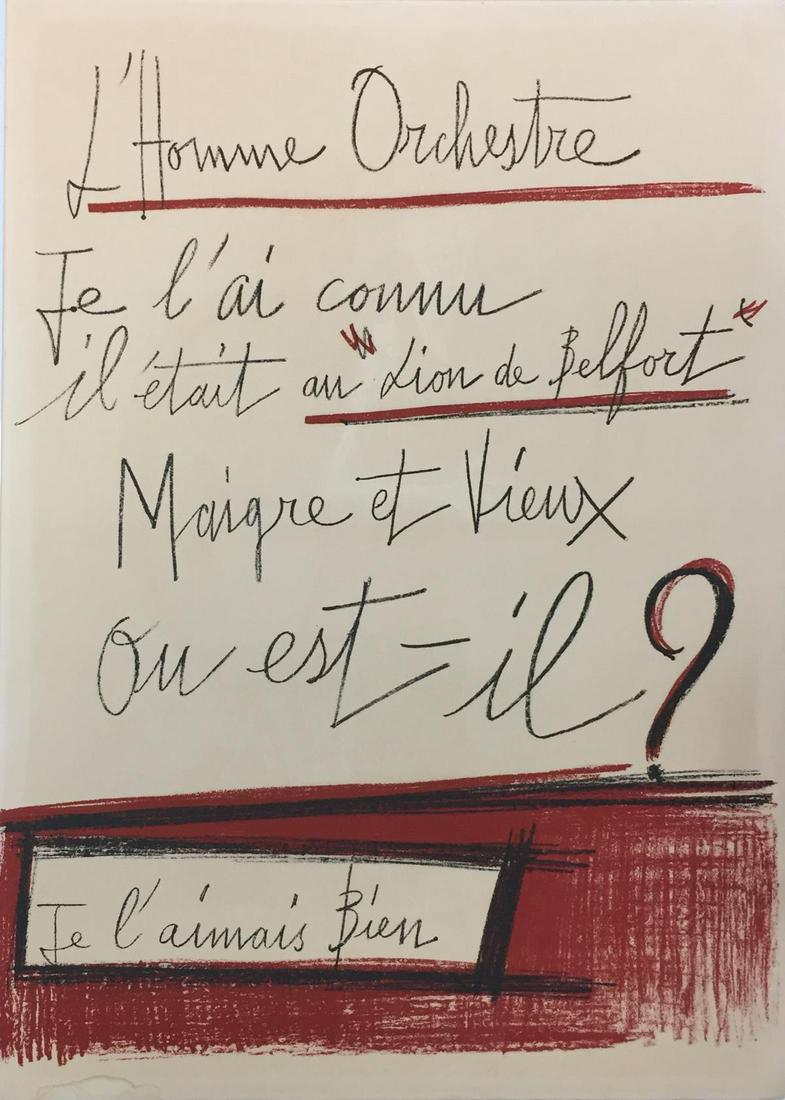 L'Homme Orchestre
Je l'ai connu
il était au "Lion de Belfort"
Maigre et Vieux
Ou est-il ?
Je l'aimais Bien